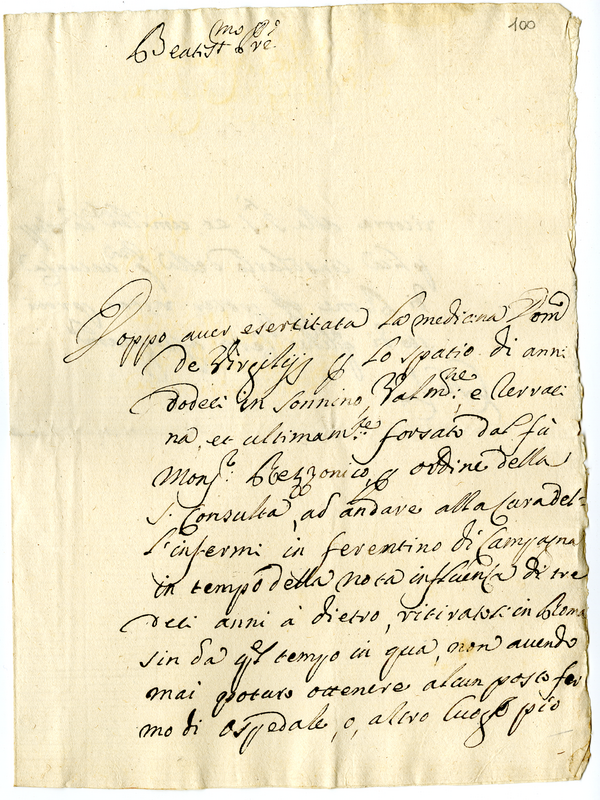 100
Beatismo Pre
Doppo auer esertitata la medicina Dom
de Virgilijs p lo spatio di anni
dodeci in Sonnino, Valmne, e Terraci
na, et ultimamte forsato dal fù
Monsr Rezzonico, p ordine della
S. Consulta, ad andare alla Cura del
l'infermi in ferentino di Campagna
in tempo della nota influenza di tre
deci anni à dietro, ritiratosi in Roma
sin da ql tempo in quà, non auendo
mai potuto ottenere alcun posto fer
mo di ospedale, o, altro luogo pio